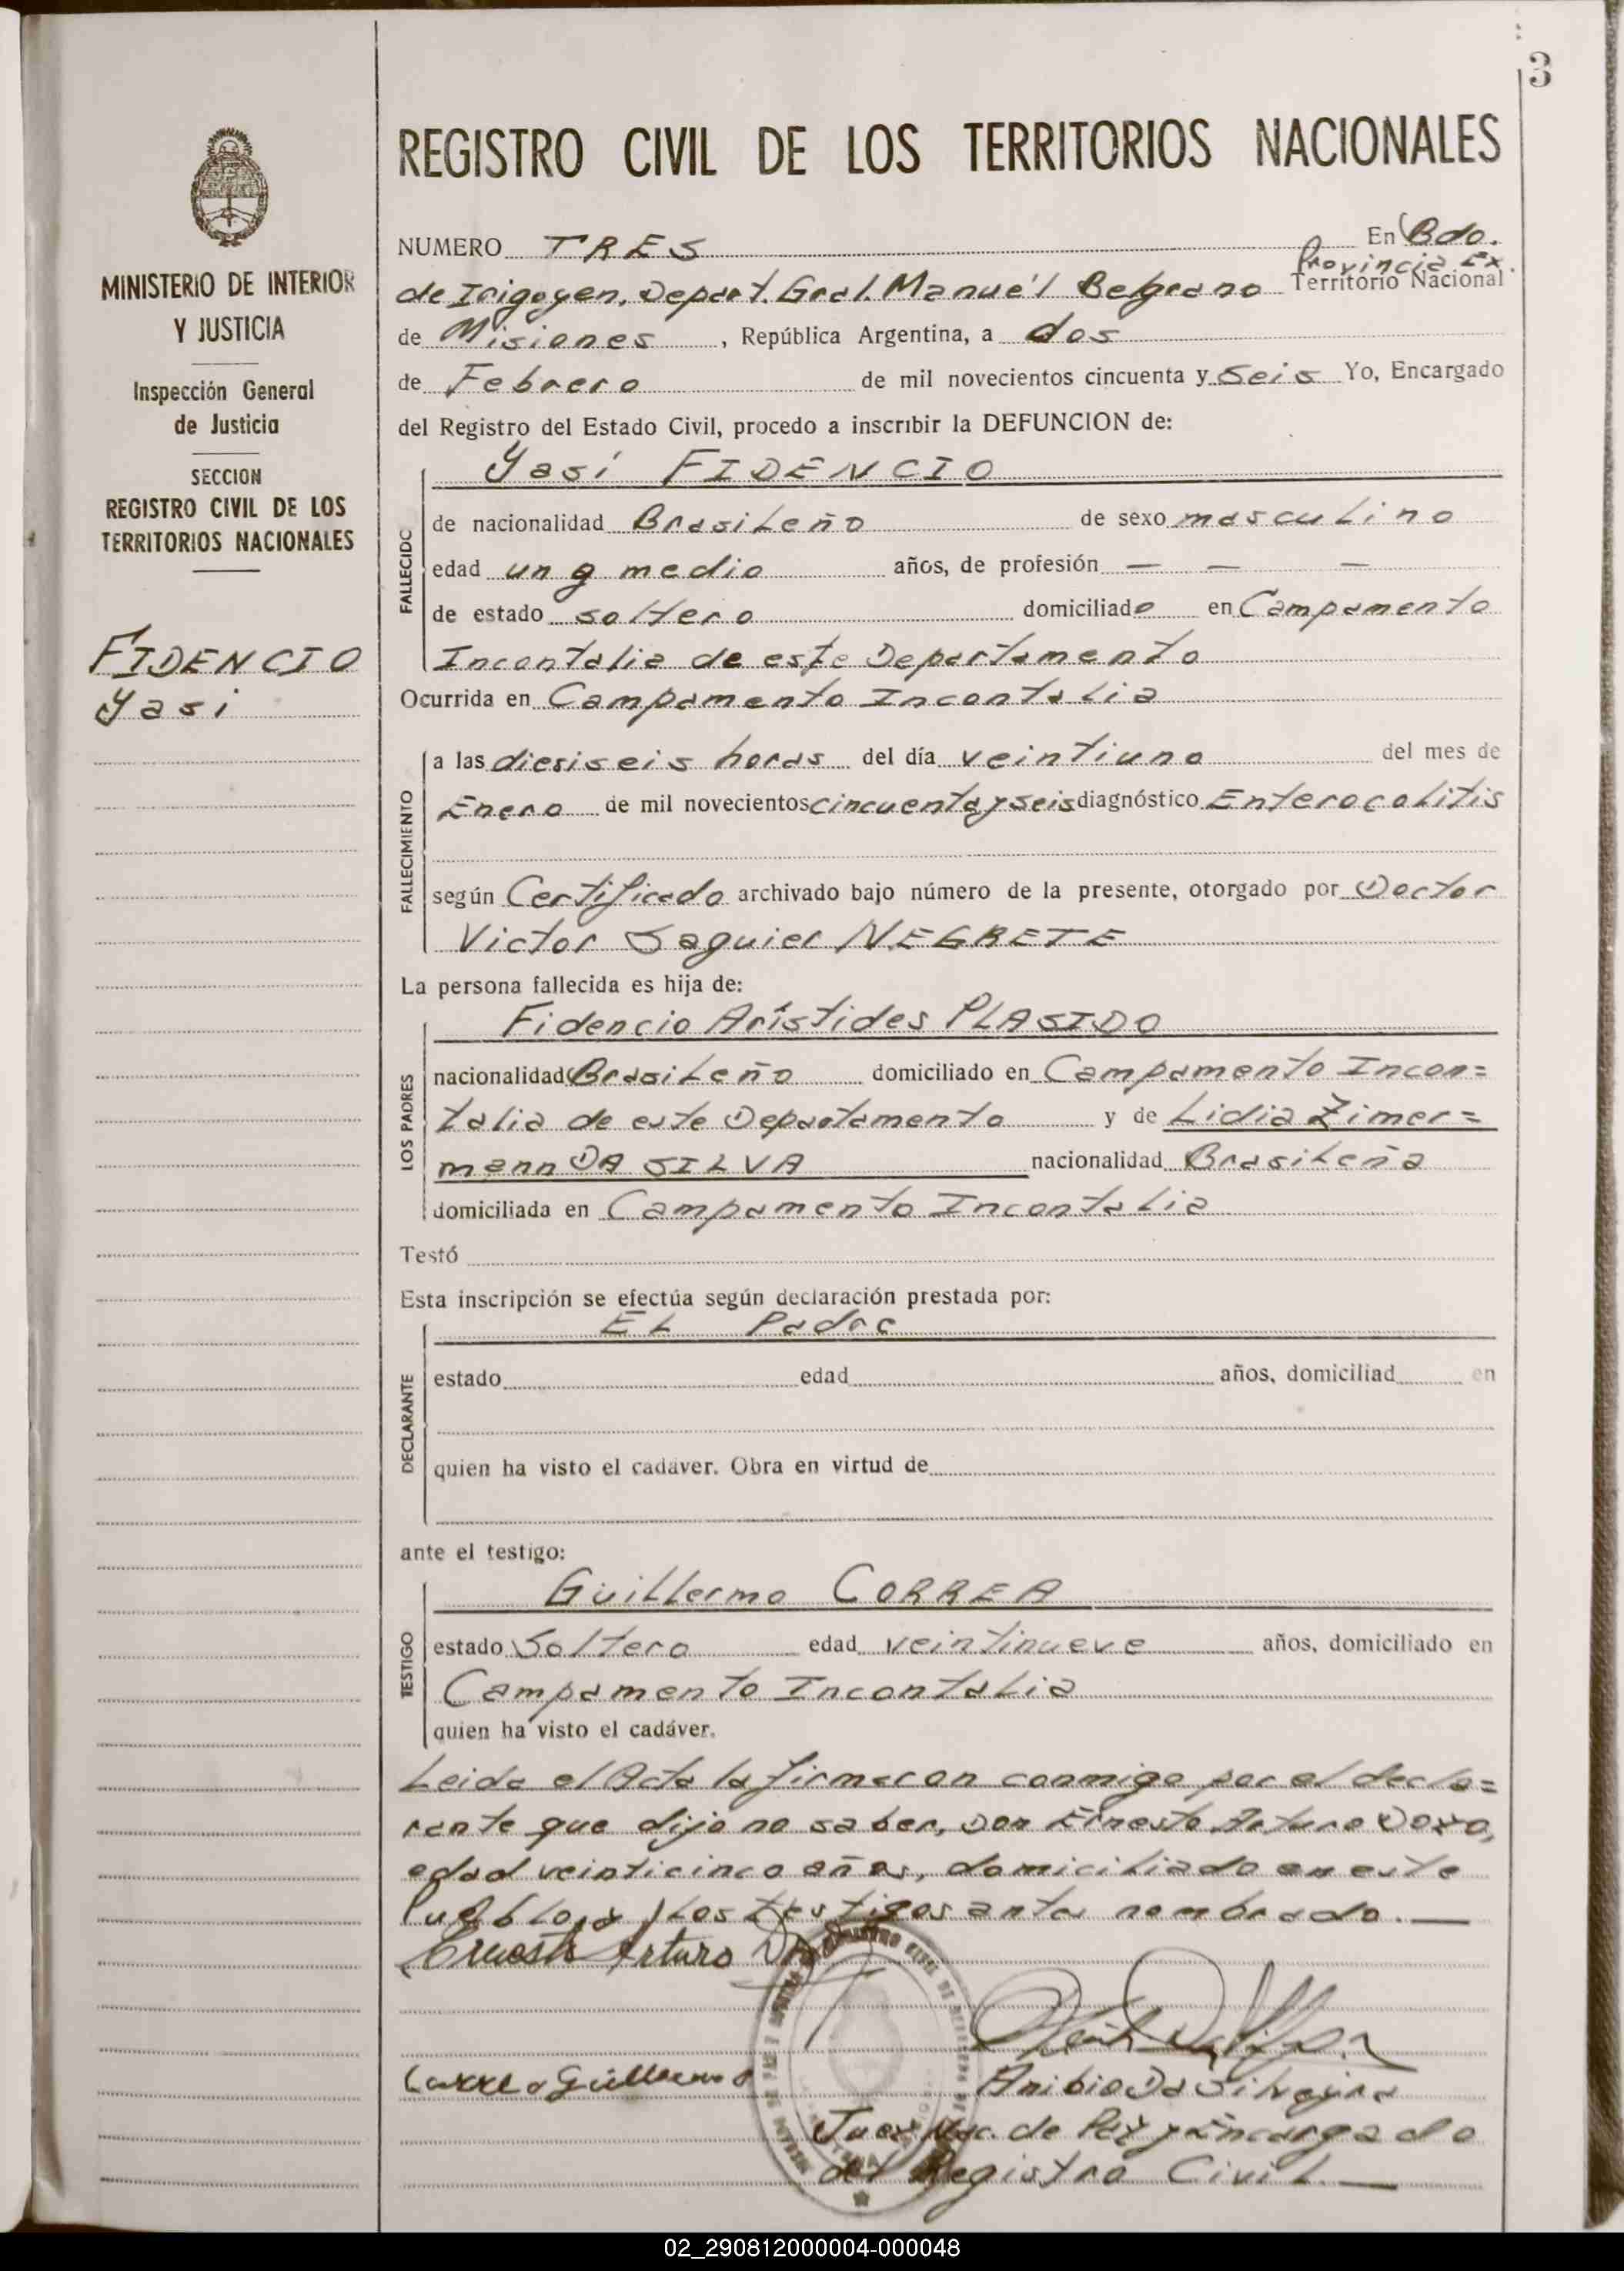 3
REGISTRO CIVIL DE LOS TERRITORIOS NACIONALES
MINISTERIO DE INTERIOR
Y JUSTICIA
Inspección General
de Justicia
SECCION
REGISTRO CIVIL DE LOS
TERRITORIOS NACIONALES
FIDENCIO
Yasi
NUMERO TRES En Bdo.
Provincia Ex.
de Irigoyen, Depart. Gral. Manuél Belgrano Territorio Nacional
de Misiones, República Argentina, a dos
de Febrero de mil novecientos cincuenta y Seis Yo, Encargado
del Registro del Estado Civil, procedo a inscribir la DEFUNCION de:
Yasí FIDENCIO
FALLECIDO
de nacionalidad Brasileño de sexo masculino
edad un y medio años, de profesión — — —
de estado soltero domiciliado en Campamento
Incontalia de este Departamento
Ocurrida en Campamento Incontalia
FALLECIMIENTO
a las diesiseis horas del día veintiuno del mes de
Enero de mil novecientos cincuenta y seis diagnóstico Enterocolitis
según Certificado archivado bajo número de la presente, otorgado por Doctor
Victor Saguier NEGRETE
La persona fallecida es hija de:
LOS PADRES
Fidencio Arístides PLASIDO
nacionalidad Brasileño domiciliado en Campamento Incon=
talia de este Departamento y de Lidia Zimer=
mann DA SILVA nacionalidad Brasileña
domiciliada en Campamento Incontalia
Testó
Esta inscripción se efectúa según declaración prestada por:
DECLARANTE
EL Padre
estado edad años, domiciliad en
quien ha visto el cadáver. Obra en virtud de
ante el testigo:
TESTIGO
Guillermo CORREA
estado Soltero edad veintinueve años, domiciliado en
Campamento Incontalia
quien ha visto el cadáver.
Leida el Acta la firmaron conmigo por el decla=
rante que dijo no saber, Don Ernesto Arturo
edad veinticinco años, domiciliado en este
Pueblo, y los testigos antes nombrado. —
Ernesto Arturo
Correa Guillermo
Anibio Da Silveira
Juez Nac. de Paz y Encargado
del Registro Civil. —
02_290812000004-000048